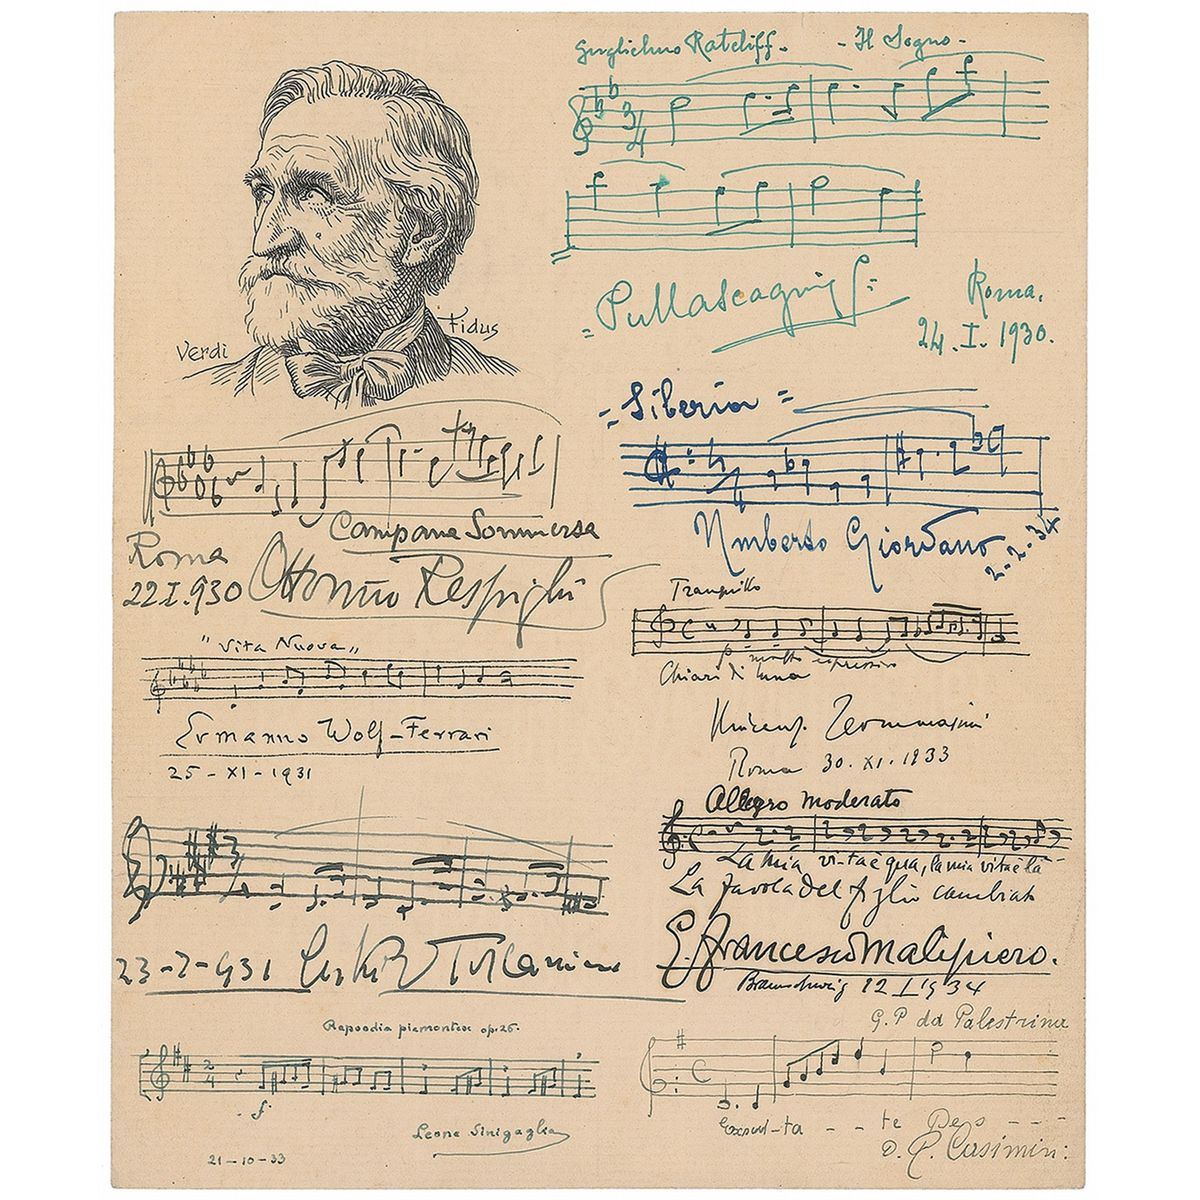 Verdi
Fidus
Guglielmo Ratcliff. - Il Sogno -
3/4
= PMascagni =
Roma.
24. I. 1930.
= Siberia =
Umberto Giordano
2-2-34
Campana Sommersa
Roma
22 I. 930
Ottorino Respighi
Tranquillo
p molto espressivo
Chiari di luna
Vincenzo Tommasini
Roma 30. XI. 1933
"Vita Nuova"
Ermanno Wolf-Ferrari
25 - XI - 1931
Allegro moderato
La mia vi-ta è qua, la mia vita è là -
La favola del figlio cambiato
G. Francesco Malipiero.
Braunschweig 12 I 1934
23-2-931
Rapsodia piemontese op. 26.
2/4
f
Leone Sinigaglia
21-10-33
G. P da Palestrina
C
Exsul-ta - - te Deo - - -
D. R. Casimiri: